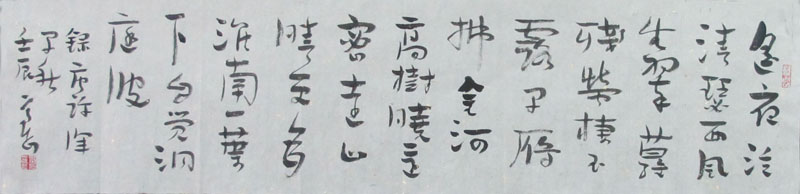 遥夜泛
清瑟西风
生翠萝
残萤栖玉
露早雁
拂金河
高树晓还
密远山
晴更多
淮南一葉
下自觉洞
庭波
録唐许浑
早秋
壬辰